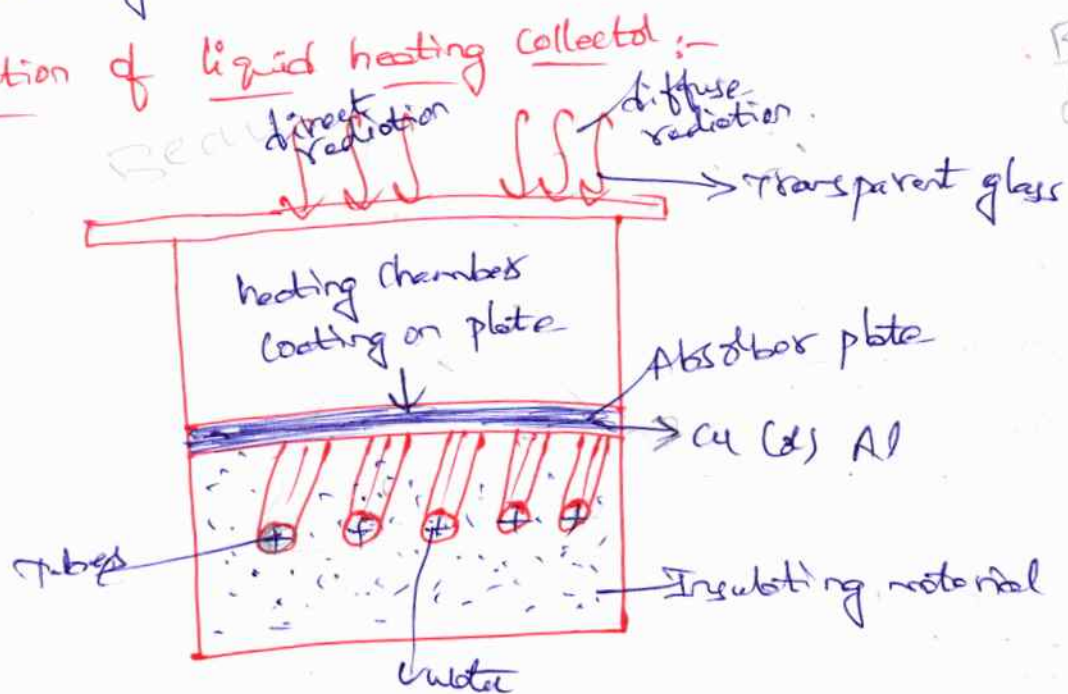 tion of liquid heating collector :-
direct
radiation
diffuse
radiation.
Transparent glass
heating Chamber
Coating on plate
Absorber plate
Cu (or) Al
Tubes
Insulating material
water